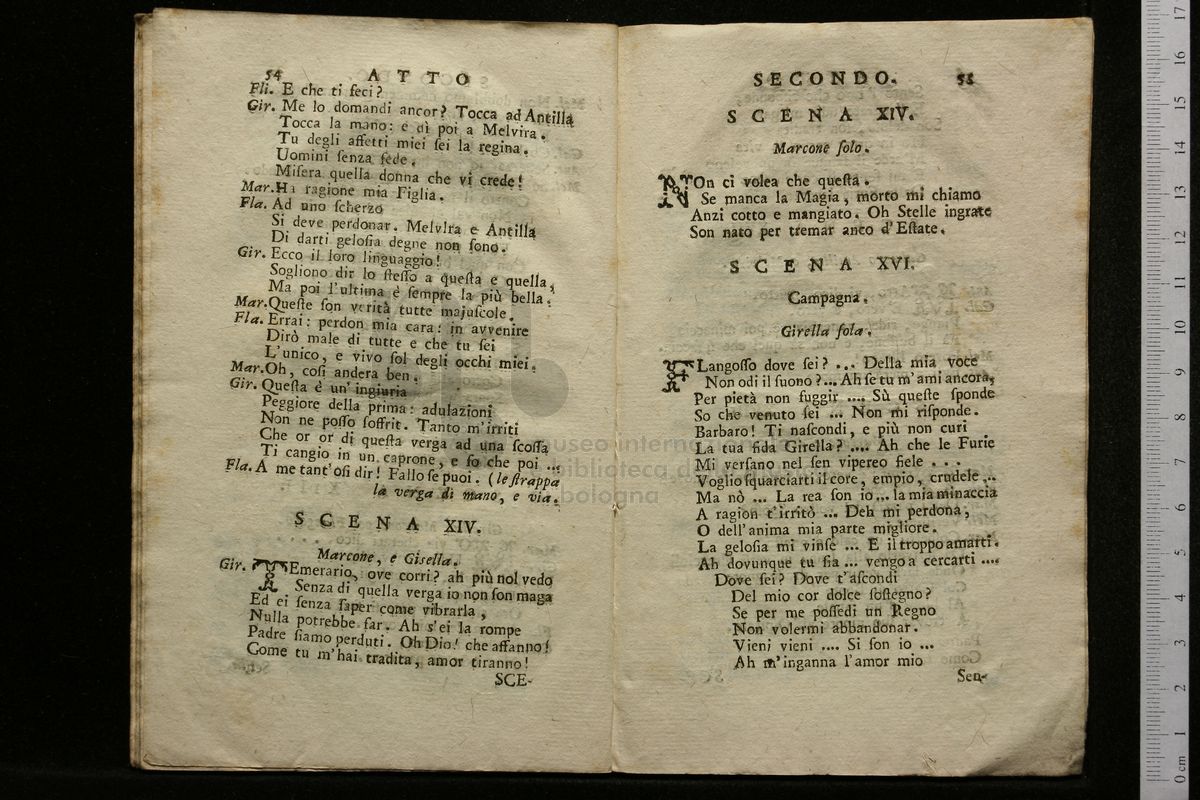 54 ATTO
Fli. E che ti feci?
Gir. Me lo domandi ancor? Tocca ad Antilla
Tocca la mano: e di poi a Melvira.
Tu degli affetti miei ſei la regina.
Uomini ſenza fede.
Miſera quella donna che vi crede!
Mar. Ha ragione mia Figlia.
Fla. Ad uno ſcherzo
Si deve perdonar. Melvira e Antilla
Di darti geloſia degne non ſono.
Gir. Ecco il loro linguaggio!
Sogliono dir lo ſteſſo a queſta e quella,
Ma poi l'ultima è ſempre la più bella.
Mar. Queſte ſon verità tutte majuſcole.
Fla. Errai: perdon mia cara: in avvenire
Dirò male di tutte e che tu ſei
L'unico, e vivo ſol degli occhi miei.
Mar. Oh, coſì andera ben.
Gir. Queſta è un' ingiuria
Peggiore della prima: adulazioni
Non ne poſſo ſoffrir. Tanto m'irriti
Che or or di queſta verga ad una ſcoſſa
Ti cangio in un caprone, e ſo che poi ...
Fla. A me tant'oſi dir! Fallo ſe puoi. (le ſtrappa
la verga di mano, e via.
SCENA XIV.
Marcone, e Giſella.
Gir. TEmerario, ove corri? ah più nol vedo
Senza di quella verga io non ſon maga
Ed ei ſenza ſaper come vibrarla,
Nulla potrebbe far. Ah s'ei la rompe
Padre ſiamo perduti. Oh Dio! che affanno!
Come tu m'hai tradita, amor tiranno!
SCE-
SECONDO. 55
SCENA XIV.
Marcone ſolo.
NOn ci volea che queſta.
Se manca la Magia, morto mi chiamo
Anzi cotto e mangiato. Oh Stelle ingrate
Son nato per tremar anco d'Eſtate.
SCENA XVI.
Campagna.
Girella ſola.
FLangoſſo dove ſei? ... Della mia voce
Non odi il ſuono?... Ah ſe tu m'ami ancora,
Per pietà non fuggir .... Sù queſte ſponde
So che venuto ſei ... Non mi riſponde.
Barbaro! Ti naſcondi, e più non curi
La tua fida Girella? .... Ah che le Furie
Mi verſano nel ſen vipereo fiele . . .
Voglio ſquarciarti il core, empio, crudele ...
Ma nò ... La rea ſon io ... la mia minaccia
A ragion t'irritò ... Deh mi perdona,
O dell'anima mia parte migliore.
La geloſia mi vinſe ... E il troppo amarti.
Ah dovunque tu ſia ... vengo a cercarti ....
Dove ſei? Dove t'aſcondi
Del mio cor dolce ſoſtegno?
Se per me poſſedi un Regno
Non volermi abbandonar.
Vieni vieni .... Si ſon io ...
Ah m'inganna l'amor mio
Sen-
museo internazionale
biblioteca della
bologna